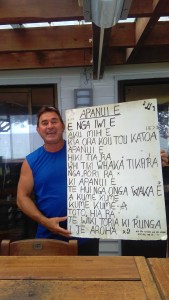 APANUI E
E NGA IWI E
AKU MIHI E
KIA ORA KOU TOU KATOA
APANUI E
HIKI TIA RA
WHI TIKI WHAKA TIKA RA
NGA RORI RA
KI APANUI E
TE HU NGA ONGA WAKA E
A KUME KUME
KUME KUME A
TOTO HIA RA
TE WAKI TORIA KI RUNGA
I TE AROHA x2